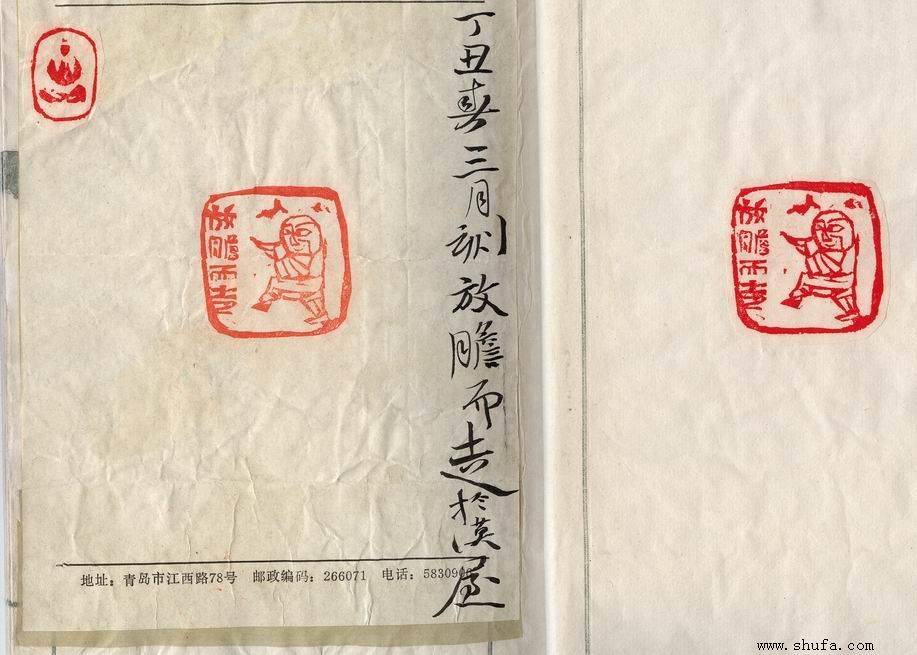 丁丑春三月刻放膽而走於漢屋
放膽而走
地址：青岛市江西路78号 邮政编码：266071 电话：583090
放膽而走
www.shufa.com